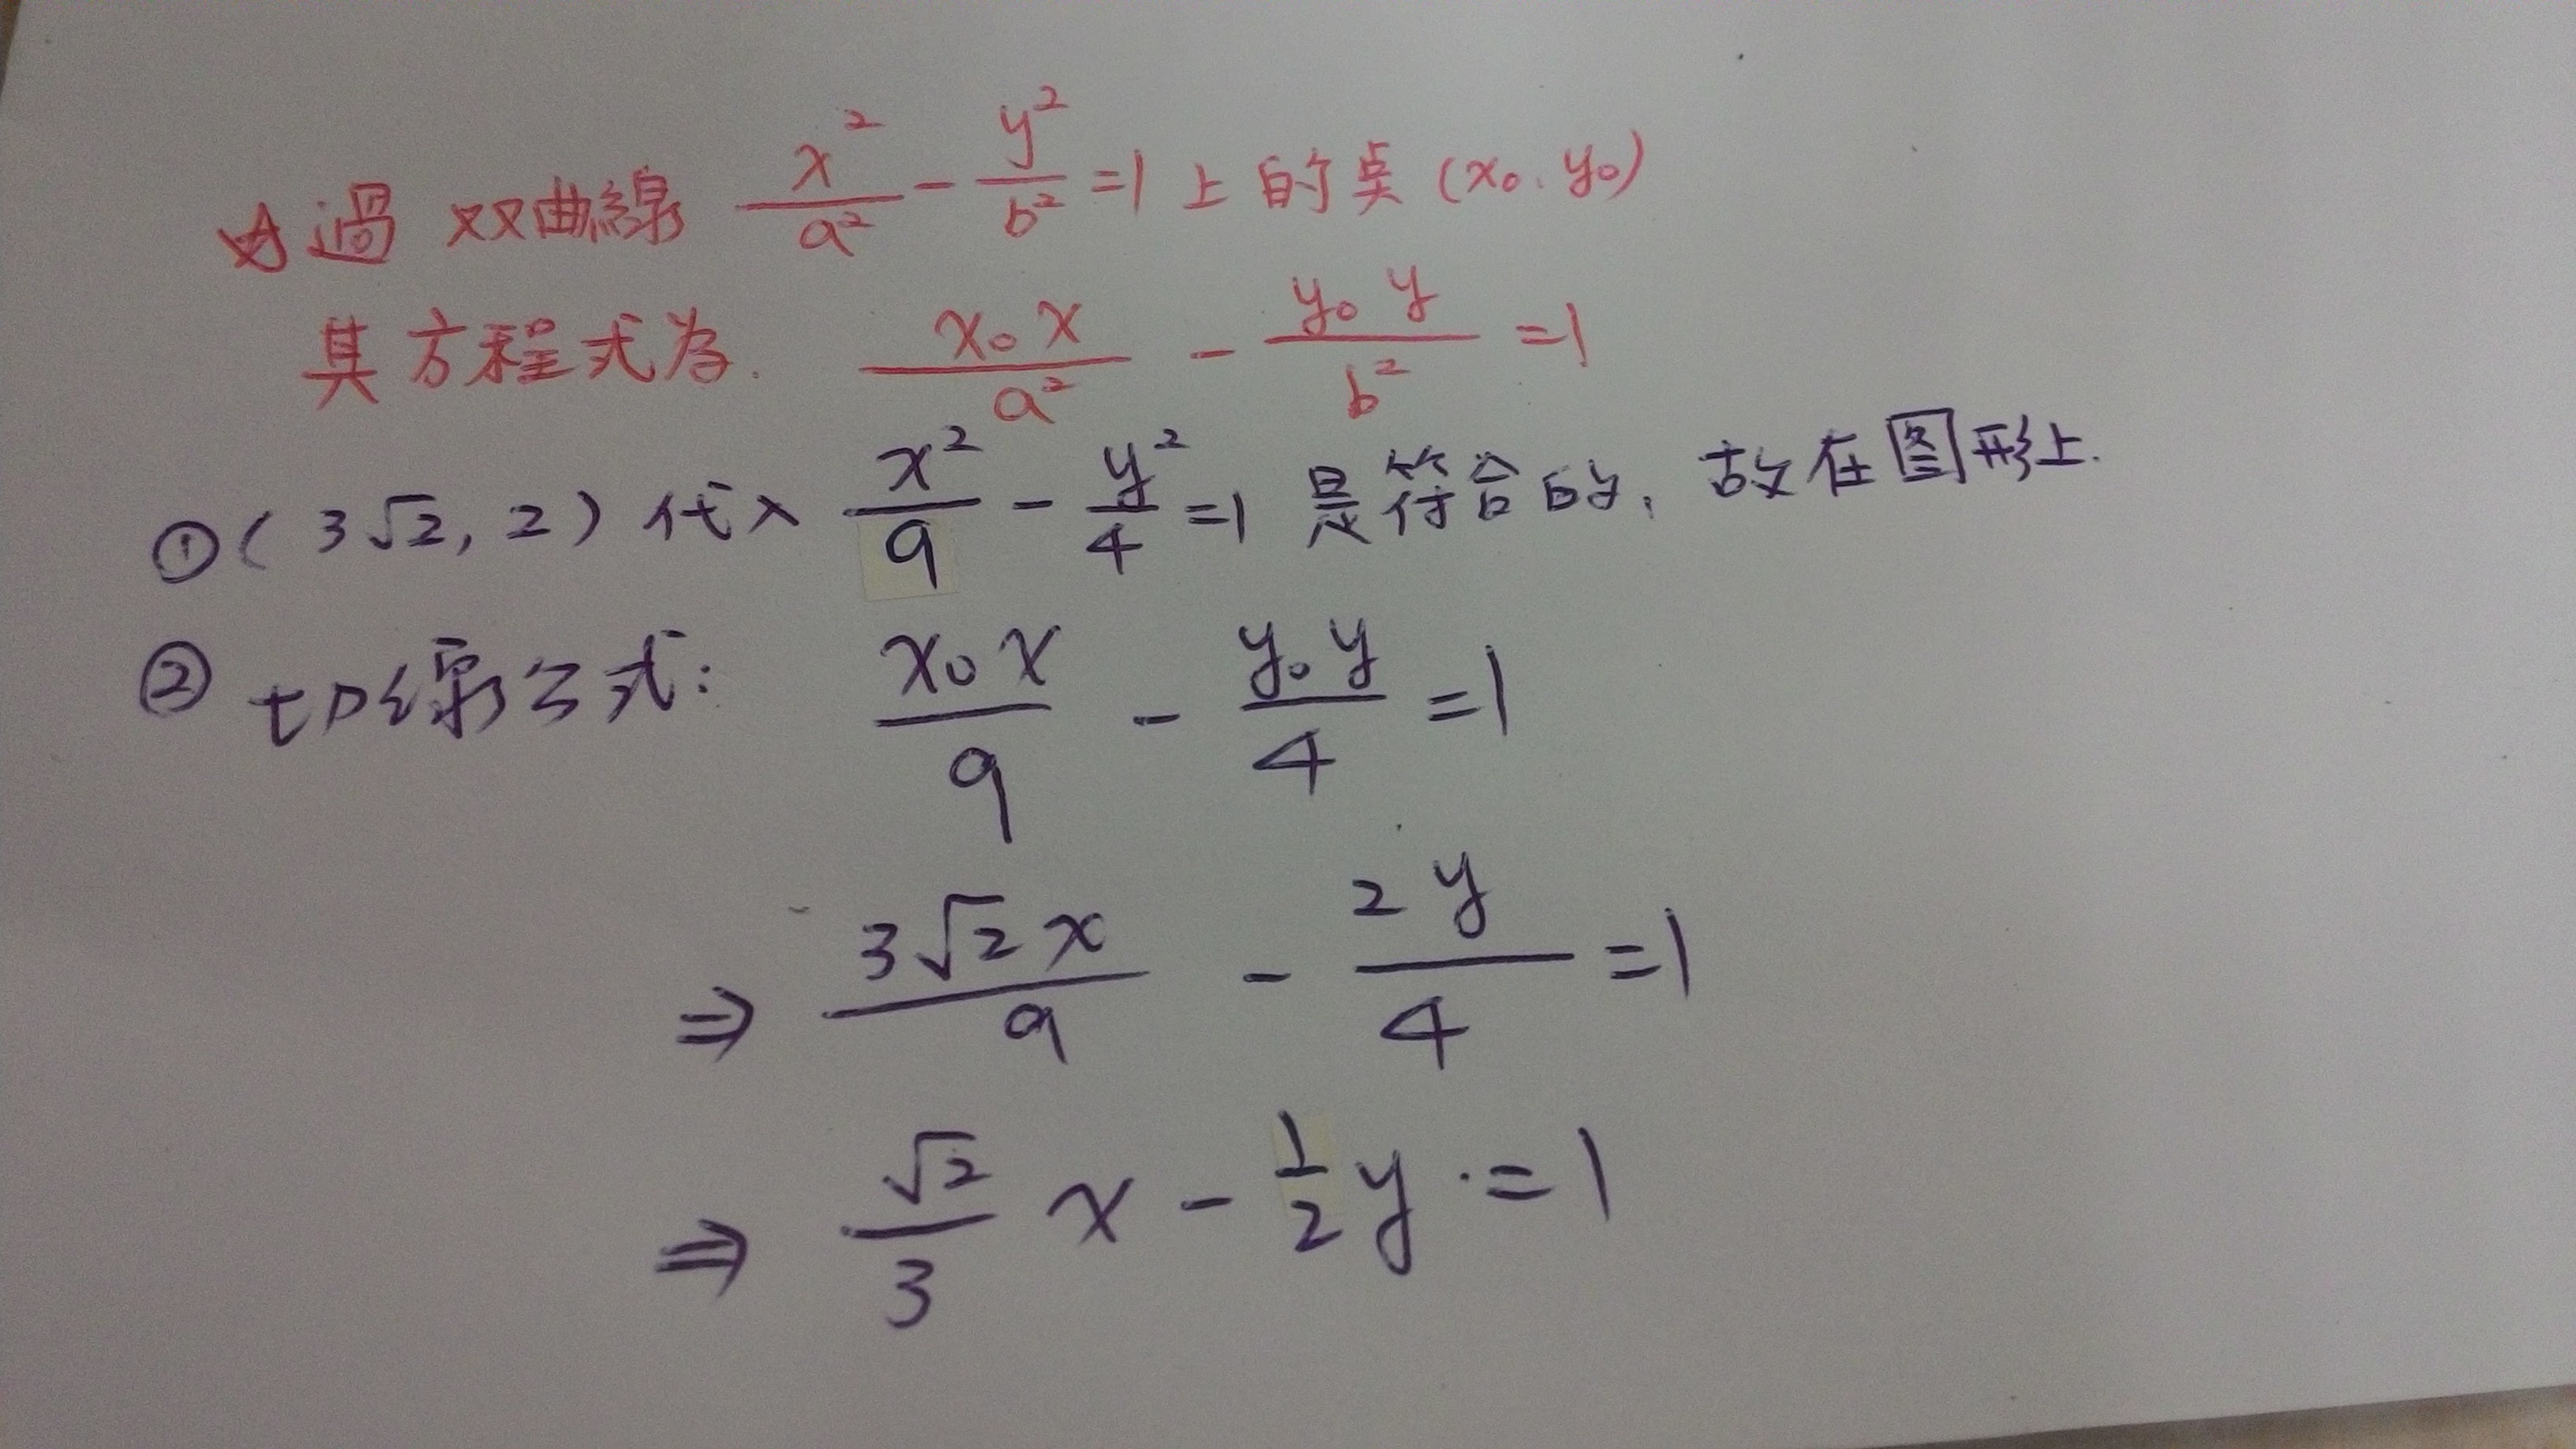 ☆過 双曲線 x²/a² - y²/b² =1 上的点 (x₀, y₀)
其方程式为. x₀x/a² - y₀y/b² =1
①(3√2, 2) 代入 x²/9 - y²/4 =1 是符合的, 故在图形上.
② 切線公式: x₀x/9 - y₀y/4 =1
⇒ 3√2x/9 - 2y/4 =1
⇒ √2/3 x - 1/2 y =1